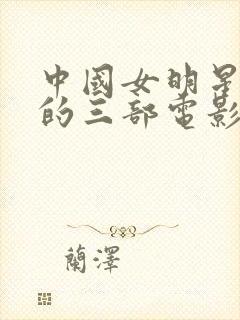 中國女明星
的三部電影
蘭澤